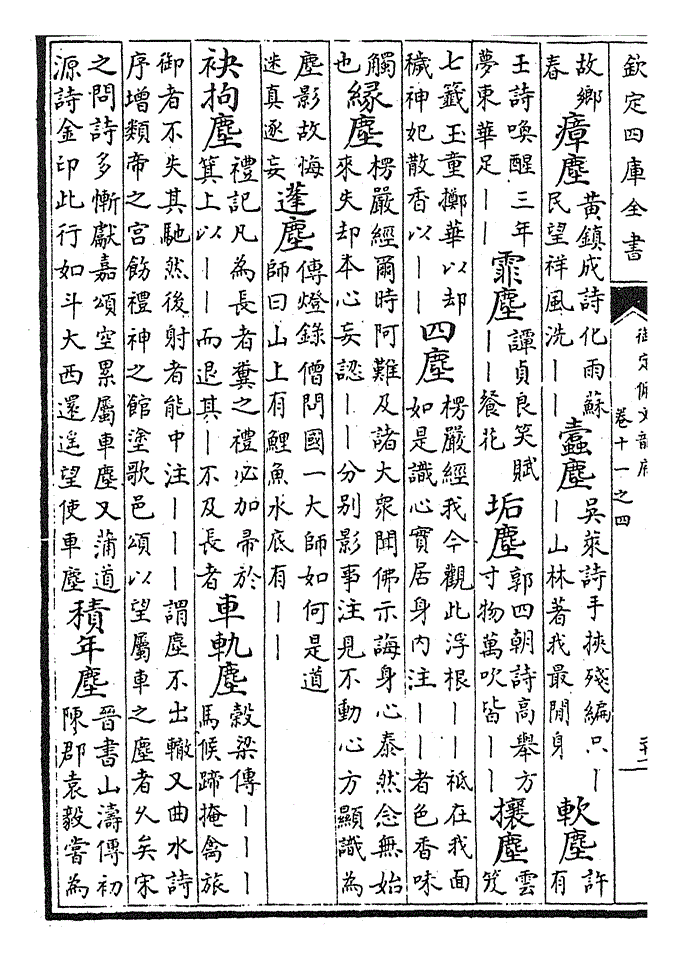 欽定四庫全書
御定佩文韻府
卷十一之四
故鄉春瘴塵黃鎮成詩化雨蘇民望祥風洗｜｜蠧塵吳萊詩手挾殘編只｜｜山林著我最閒身軟塵許有
壬詩喚醒三年夢東華足｜｜霏塵譚貞良笑賦｜｜餐花垢塵郭四朝詩高舉方寸物萬吹皆｜｜攘塵雲笈
七籤玉童擲華以却穢神妃散香以｜｜四塵楞嚴經我今觀此浮根｜｜祗在我面如是識心實居身內注｜｜者色香味
觸也緣塵楞嚴經爾時阿難及諸大衆聞佛示誨身心泰然念無始來失却本心妄認｜｜分别影事注見不動心方顯識為
塵影故悔迷真逐妄蓬塵傳燈錄僧問國一大師如何是道師曰山上有鯉魚水底有｜｜
袂拘塵禮記凡為長者糞之禮必加帚於箕上以｜｜而退其｜不及長者車軌塵榖梁傳｜｜｜馬候蹄掩禽旅
御者不失其馳然後射者能中注｜｜｜謂塵不出轍又曲水詩序增類帝之宮飭禮神之館塗歌邑頌以望屬車之塵者久矣宋
之問詩多慚獻嘉頌空累屬車塵又蒲道源詩金印此行如斗大西還遙望使車塵積年塵晉書山濤傳初陳郡袁毅嘗為